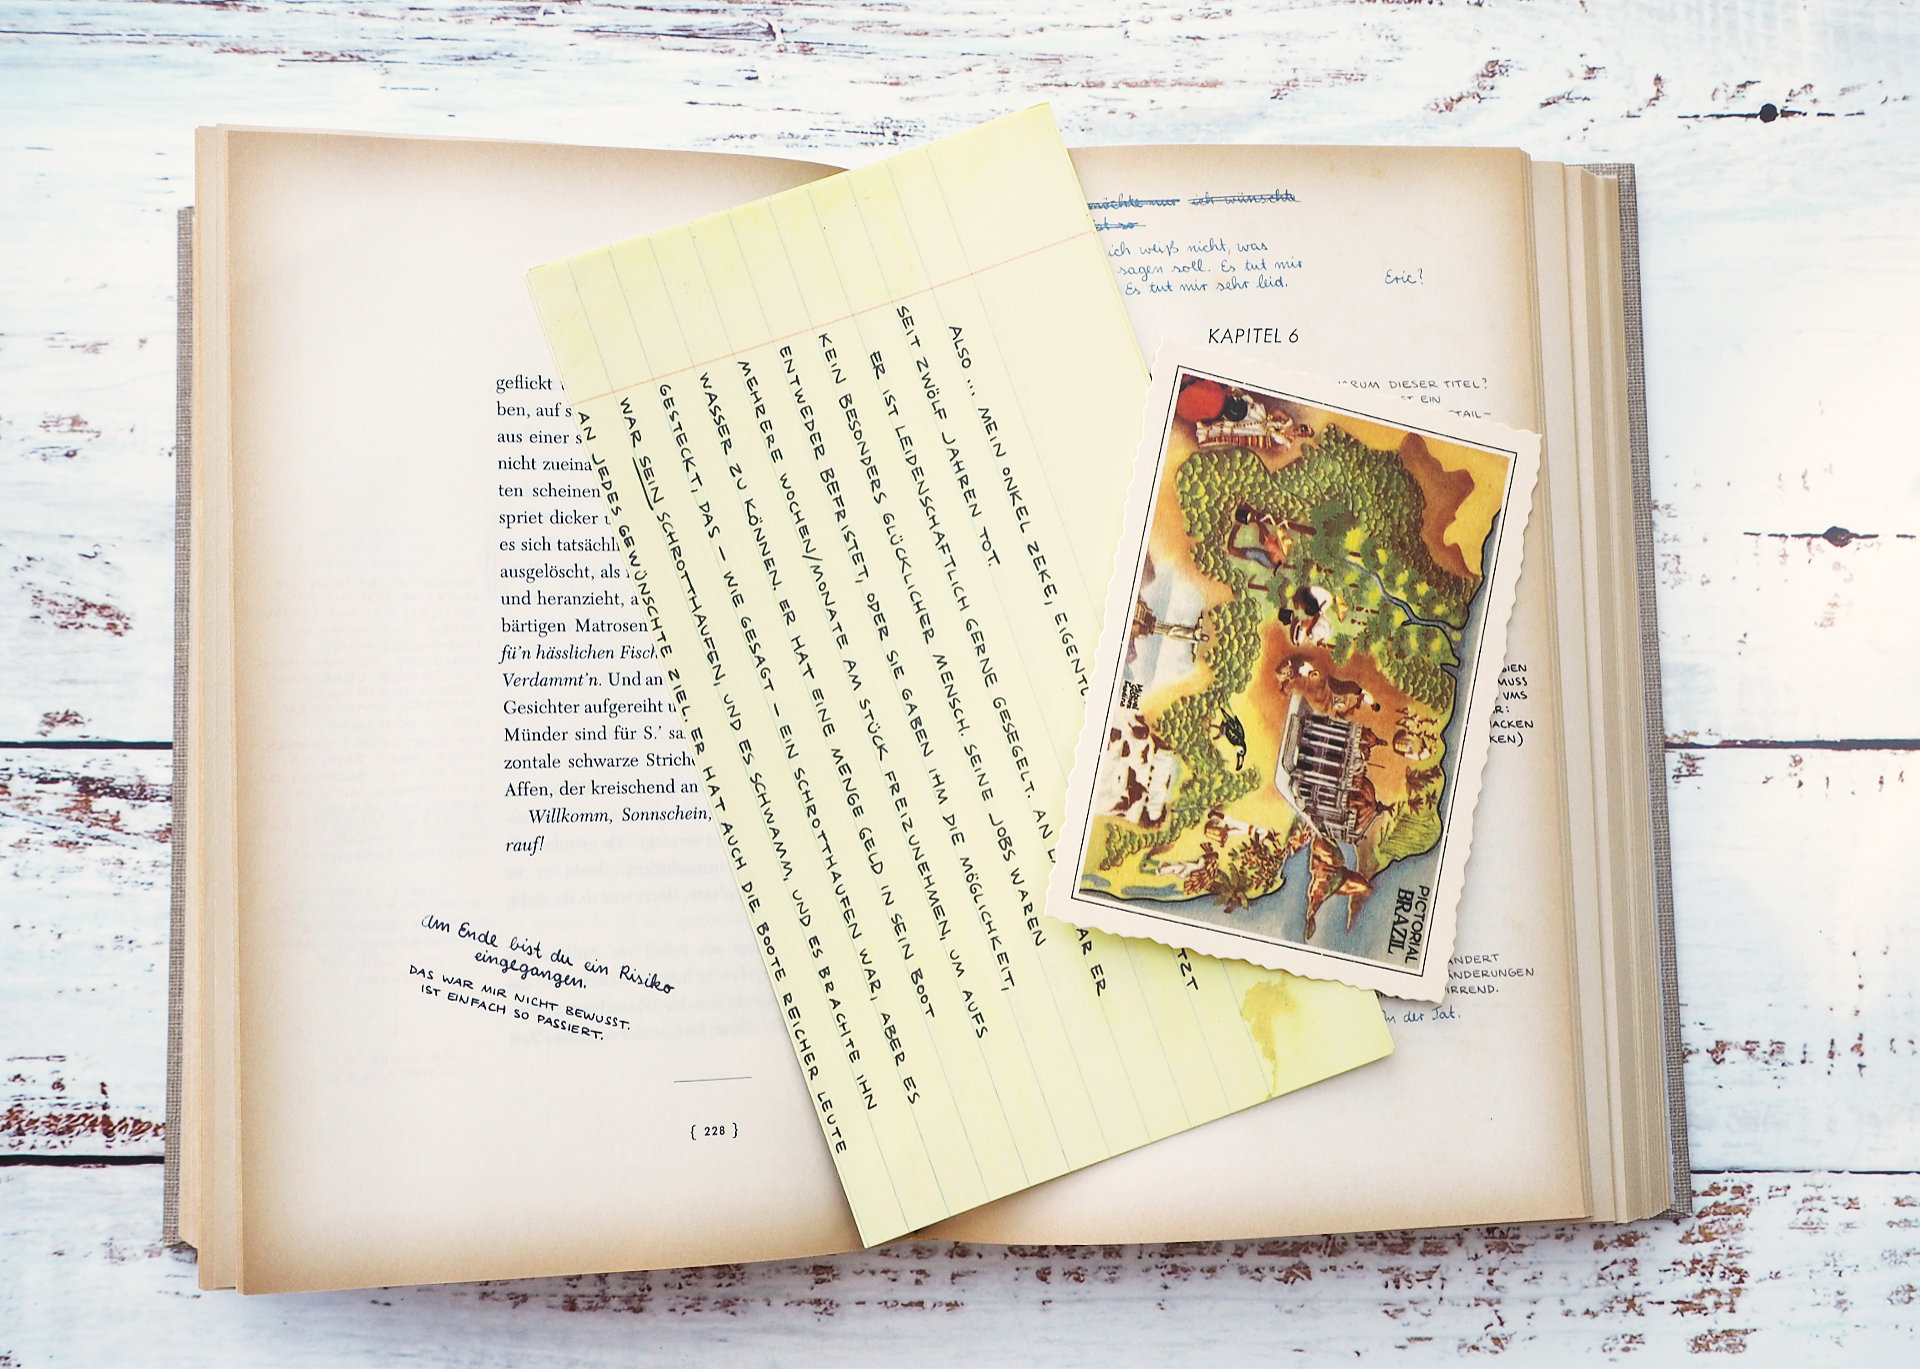 geflickt
ben, auf s
aus einer s
nicht zueina
ten scheinen
spriet dicker
es sich tatsächl
ausgelöscht, als
und heranzieht, a
bärtigen Matrosen
fü'n hässlichen Fisch
Verdammt'n. Und an
Gesichter aufgereiht u
Münder sind für S.' sa
zontale schwarze Striche
Affen, der kreischend an
Willkomm, Sonnschein,
rauf!
Am Ende bist du ein Risiko
eingegangen.
DAS WAR MIR NICHT BEWUSST.
IST EINFACH SO PASSIERT.
{ 228 }
ALSO ... MEIN ONKEL ZEKE, EIGENTL
SEIT ZWÖLF JAHREN TOT.
ER IST LEIDENSCHAFTLICH GERNE GESEGELT. AN
KEIN BESONDERS GLÜCKLICHER MENSCH. SEINE JOBS WAREN
ENTWEDER BEFRISTET, ODER SIE GABEN IHM DIE MÖGLICHKEIT,
MEHRERE WOCHEN/MONATE AM STÜCK FREIZUNEHMEN, UM AUFS
WASSER ZU KÖNNEN. ER HAT EINE MENGE GELD IN SEIN BOOT
GESTECKT, DAS – WIE GESAGT – EIN SCHROTTHAUFEN WAR, ABER ES
WAR SEIN SCHROTTHAUFEN, UND ES SCHWAMM, UND ES BRACHTE IHN
AN JEDES GEWÜNSCHTE ZIEL. ER HAT AUCH DIE BOOTE REICHER LEUTE
TZT
AR ER
möchte nur ich wünschte
ich weiß nicht, was
sagen soll. Es tut mir
Es tut mir sehr leid.
Eric?
KAPITEL 6
ARUM DIESER TITEL?
ST EIN
TAIL-
PICTORIAL
BRAZIL
IEN
MUSS
UMS
R:
ACKEN
KEN)
ÄNDERT
NDERUNGEN
IRREND.
In der Tat.